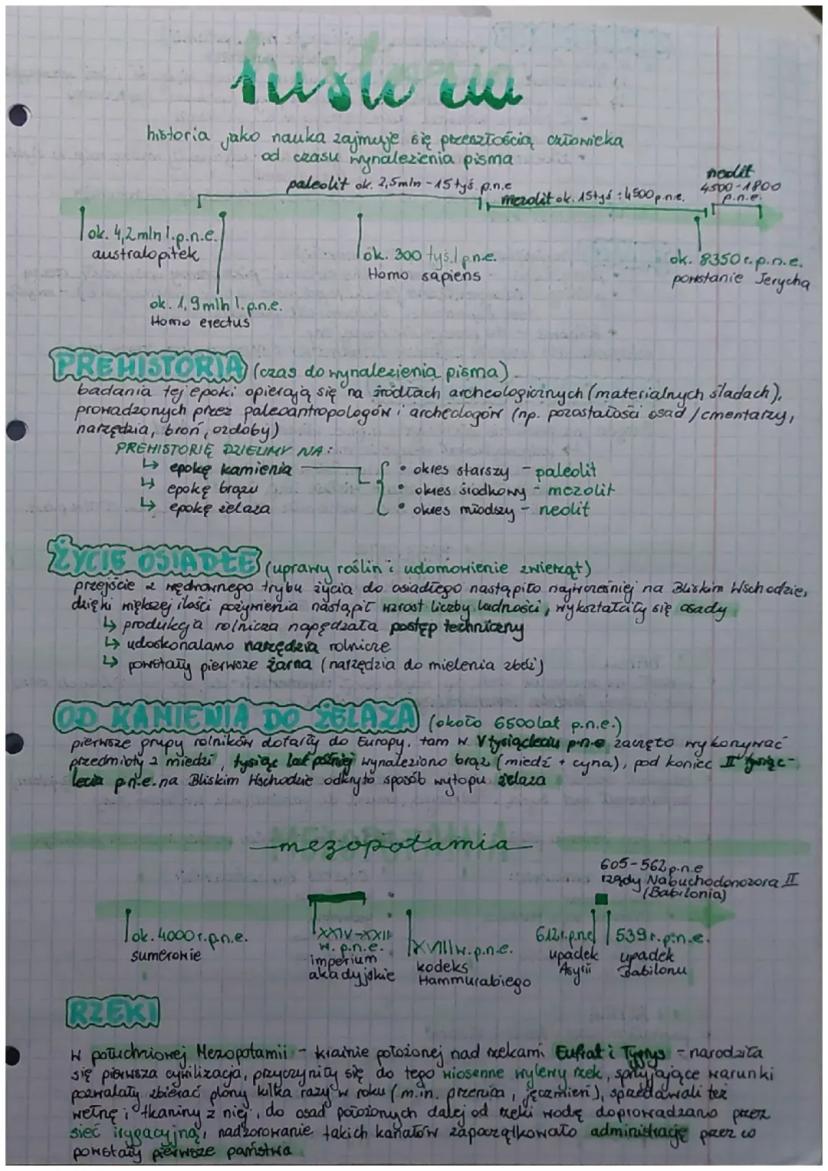 historia
historia jako nauka zajmuje się przeszłością człowieka
od czasu wynalezienia pisma
paleolit ok. 2,5mln - 15tyś p.n.e
mezolit ok. 15tyś : 4500 p.n.e.
neolit
4500-1800
p.n.e.
ok. 4,2mln l.p.n.e.
australopitek
ok. 1,9mln l.p.n.e.
Homo erectus
ok. 300 tyś.l p.n.e.
Homo sapiens
ok. 8350 r.p.n.e.
powstanie Jerycha
PREHISTORIA (czas do wynalezienia pisma)
badania tej epoki opierają się na źródłach archeologicznych (materialnych śladach),
prowadzonych przez paleoantropologów i archeologów (np. pozostałości osad / cmentarzy,
narzędzia, broń, ozdoby)
PREHISTORIĘ DZIELIMY NA:
↳ epokę kamienia
↳ epokę brązu
↳ epokę żelaza
• okres starszy - paleolit
• okres środkowy - mezolit
• okres młodszy - neolit
ŻYCIE OSIADŁE (uprawy roślin i udomowienie zwierząt)
przejście z wędrownego trybu życia do osiadłego nastąpiło najwcześniej na Bliskim Wschodzie,
dzięki większej ilości pożywienia nastąpił wzrost liczby ludności, wykształciły się osady
↳ produkcja rolnicza napędzała postęp techniczny
↳ udoskonalano narzędzia rolnicze
↳ powstały pierwsze żarna (narzędzia do mielenia zbóż)
OD KAMIENIA DO ŻELAZA (około 6500lat p.n.e.)
pierwsze grupy rolników dotarły do Europy, tam w V tysiącleciu p.n.e zaczęto wykonywać
przedmioty z miedzi, tysiąc lat później wynaleziono brąz (miedź + cyna), pod koniec II tysiąc-
lecia p.n.e. na Bliskim Wschodzie odkryto sposób wytopu żelaza
mezopotamia
605-562 p.n.e
rządy Nabuchodonozora II
(Babilonia)
ok. 4000 r.p.n.e.
sumerowie
XXIV-XXII
w. p.n.e.
imperium
akadyjskie
XVIII w. p.n.e.
kodeks
Hammurabiego
612 r.p.n.e
upadek
Asyrii
539 r.p.n.e.
upadek
Babilonu
RZEKI
W południowej Mezopotamii - krainie położonej nad rzekami Eufrat i Tygrys - narodziła
się pierwsza cywilizacja, przyczyniły się do tego wiosenne wylewy rzek, sprzyjające warunki
pozwalały zbierać plony kilka razy w roku (m.in. pszenica, jęczmień), sprzedawali też
wełnę i tkaniny z niej, do osad położonych dalej od rzeki wodę doprowadzano przez
sieć irygacyjną, nadzorowanie takich kanałów zapoczątkowało administrację przez co
powstały pierwsze państwa